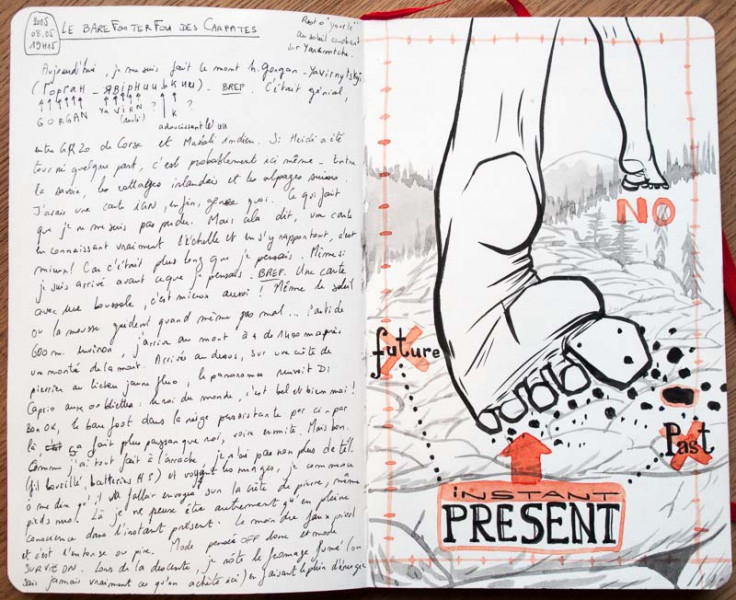 2015
08.05
19H15
LE BAREFOOTERFOU DES CARPATES
au soleil couchant
sur Yaremtche.
Aujourd'hui, je me suis fait le mont h. Gorgan - Yavirnytskyi
(ГОРГАН - ЯВІРНИЦЬКИЙ). BREF. C'était génial,
GORGAN YA VIRN ? ?
K
adoucissant
entre GR20 de Corse et Massali indien. Si Heidi a été
tourné quelque part, c'est probablement ici même. Entre
la Savoie, les cottages irlandais et les alpages suisses.
J'avais une carte IGN, enfin, genre quoi. Ce qui fait
que je ne me suis pas perdu. Mais cela dit, une carte
en connaissant vraiment l'échelle et en s'y rapportant, c'est
mieux! Car c'était plus long que je pensais. Même si
je suis arrivé avant ce que je pensais. BREF. Une carte
avec une boussole, c'est mieux aussi! Même le soleil
ou la mousse guident quand même pas mal... Parti de
600 m. environ, j'arrive au mont à + de 1400 m après
une montée de la mort. Arrivée au dessus, sur une crête de
pierrier au lichen jaune fluo, le panorama renvoit Di
Caprio aux oubliettes: le roi du monde, c'est bel et bien moi!
Bon OK, le barefoot dans la neige persistante par ci-par
là, ça fait plus paysan que roi, voire ermite. Mais bon.
Comme j'ai tout fait à l'arrache, je n'ai pas non plus de tél.
(fil bousillé, batterie HS) et voyant les nuages, je commence
à me dire qu'il va falloir envoyer sur la crête de pierre, même
pieds nus. Là je ne peux être autrement qu'en pleine
conscience dans l'instant présent. Le moindre faux pied
et c'est l'entorse ou pire. Mode pensée OFF donc et mode
SURVIE ON. Lors de la descente, je note le fromage fumé (on
sait jamais vraiment ce qu'on achète ici) en faisant le plein d'énergie
NO
future
Past
INSTANT
PRESENT